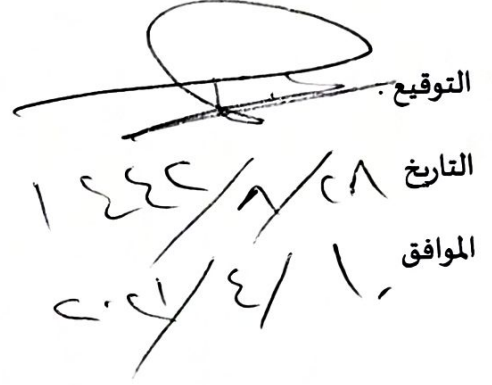 التوقيع .
التاريخ ٢٨/٨/١٤٤٢
الموافق ١٠/٤/٢٠٢١